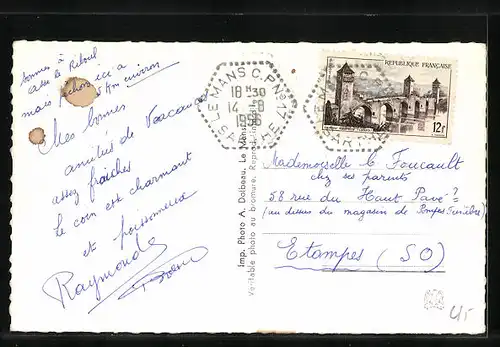 sommes à
mais pêchons ici à
5 Km environ
Mes bonnes
amitiés de Vacances
assez fraîches
Le coin est charmant
et poissonneux
Raymonde
Imp. Photo A. Dolbeau, Le Mans
Véritable photo au bromure. Reproduction
LE MANS C.P. N°17
18H30
14-8
1956
SARTHE
REPUBLIQUE FRANÇAISE
12F
Mademoiselle C Foucault
chez ses parents
58 rue du Haut Pavé
(au dessus du magasin de Pompes Funèbres)
Etampes (SO)